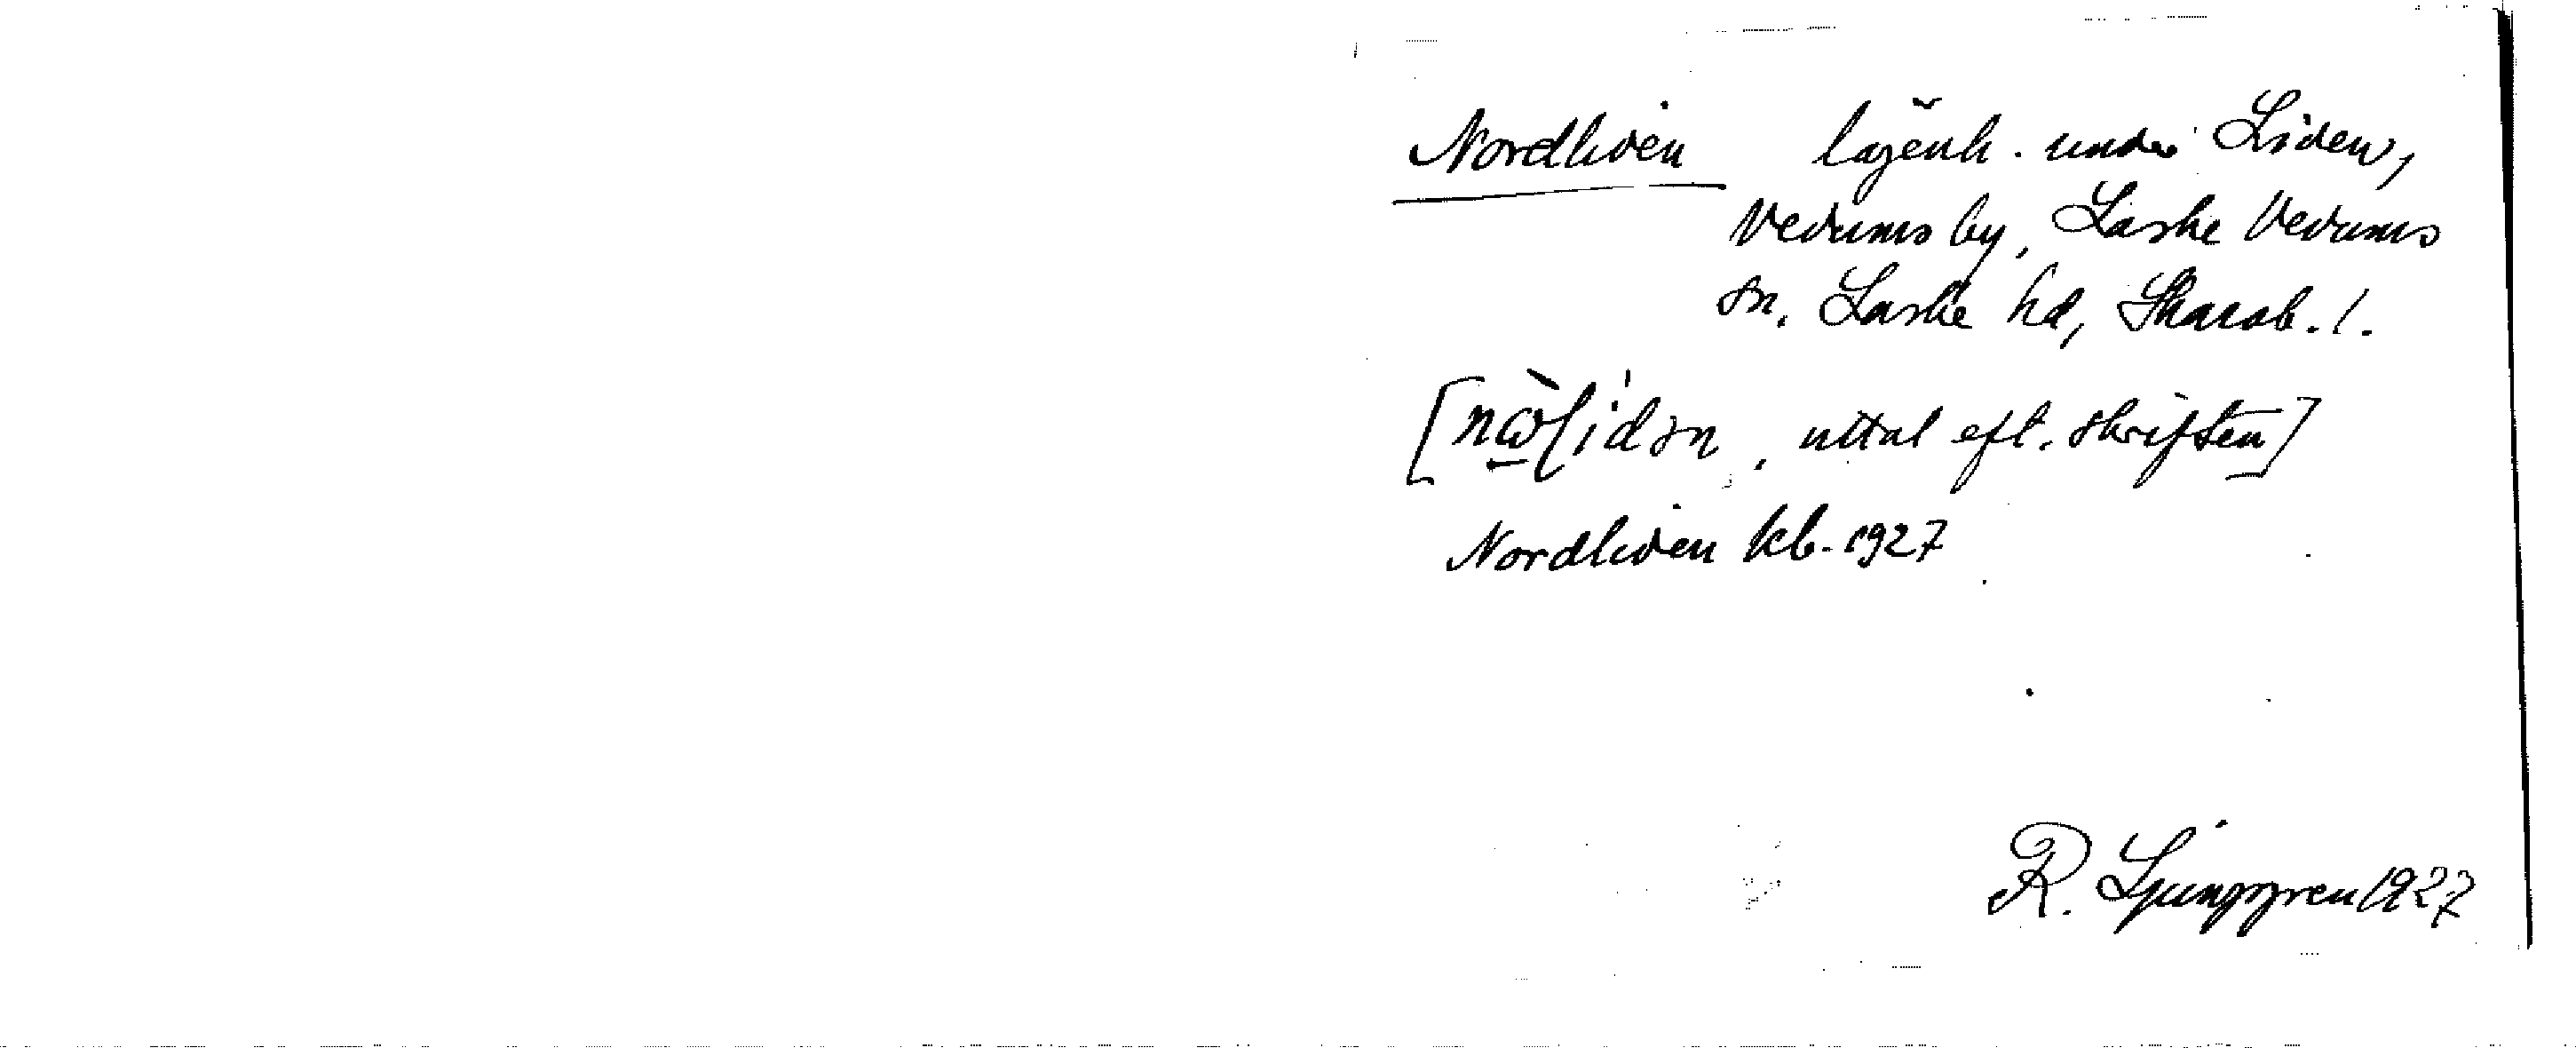 Nordliden lägenh. under Liden,
Vedums by, Laske Vedums
sn. Laske hd, Skarab. l.
[nὼ̲lidən, uttal eft. skriften]
Nordliden kb. 1927
R. Ljunggren 1927